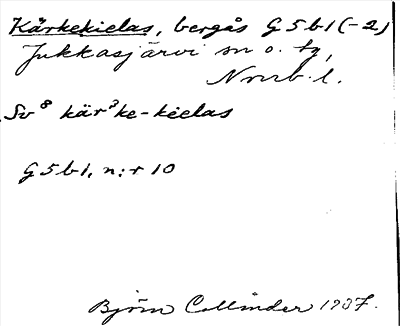 Kärkekielas, bergås G5b1(-2)
Jukkasjärvi sn o. tg,
Nrrb. l.
Sv⁸ kär³ke-kielas
G5b1, n:r 10
Björn Collinder 1937.